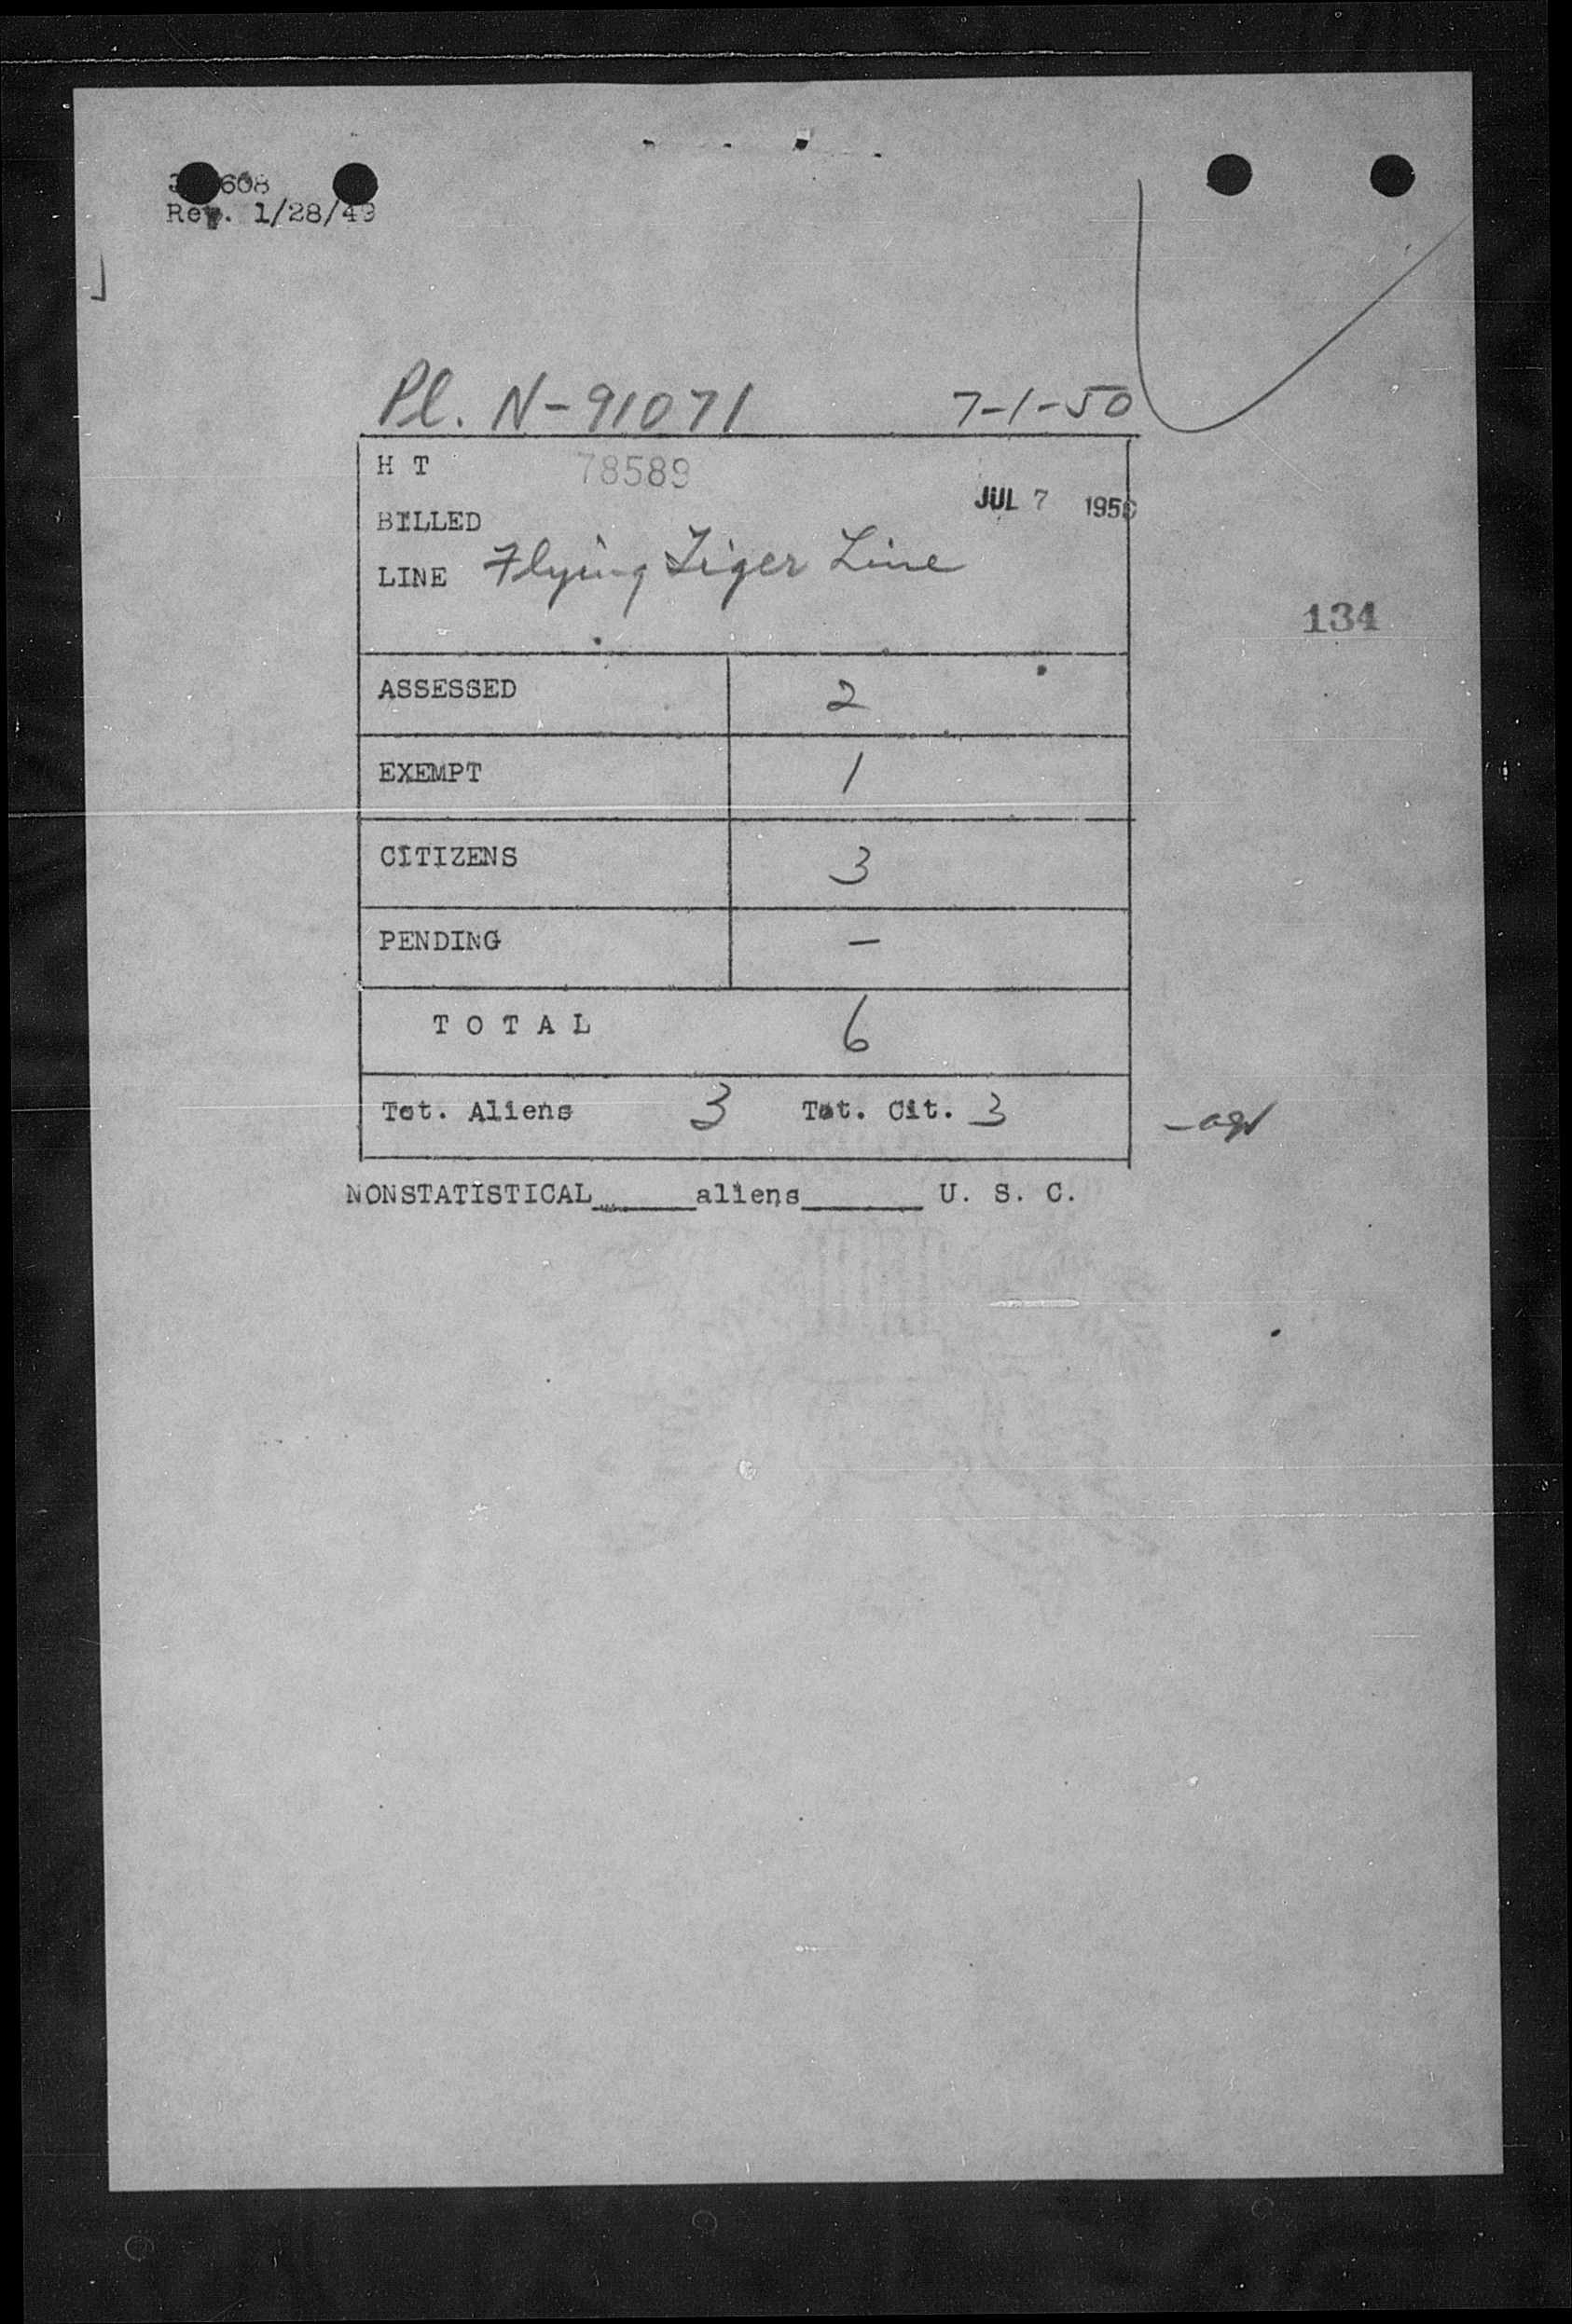 608
Rev. 1/28/49
Pl. N-91071 7-1-50
H T 78589
BILLED JUL 7 1950
LINE Flying Tiger Line
134
ASSESSED 2
EXEMPT 1
CITIZENS 3
PENDING —
T O T A L 6
Tot. Aliens 3 Tot. Cit. 3
NONSTATISTICAL______aliens_______ U. S. C.